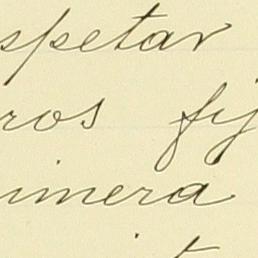 spetar
ros fij
imera